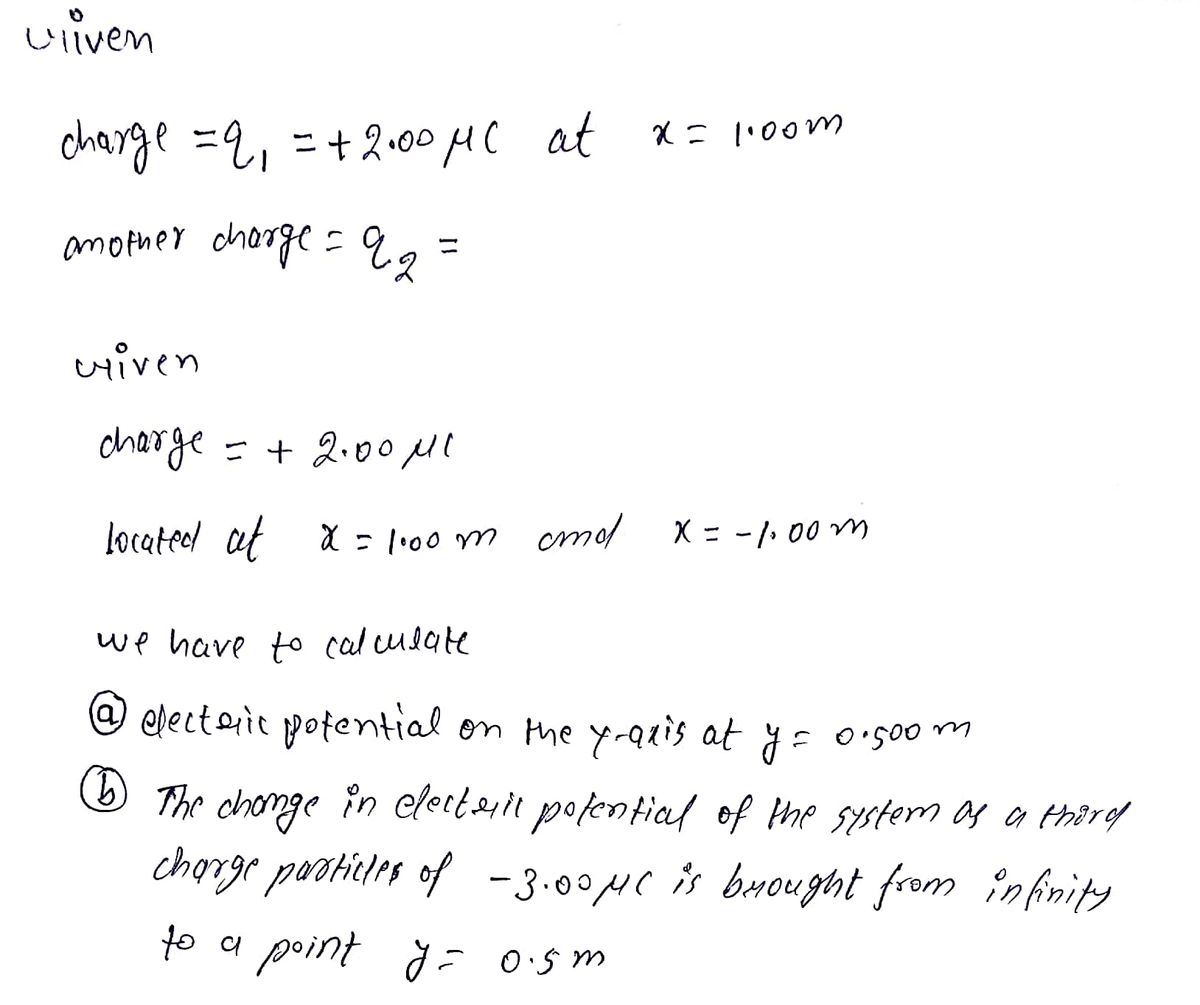 Given
charge = q₁ = + 2.00 μC at x = 1.00 m
another charge = q₂ =
Given
charge = + 2.00 μC
located at x = 1.00 m and x = -1.00 m
we have to calculate
ⓐ electric potential on the y-axis at y = 0.500 m
ⓑ The change in electric potential of the system as a third
charge particles of -3.00 μC is brought from infinity
to a point y = 0.5 m